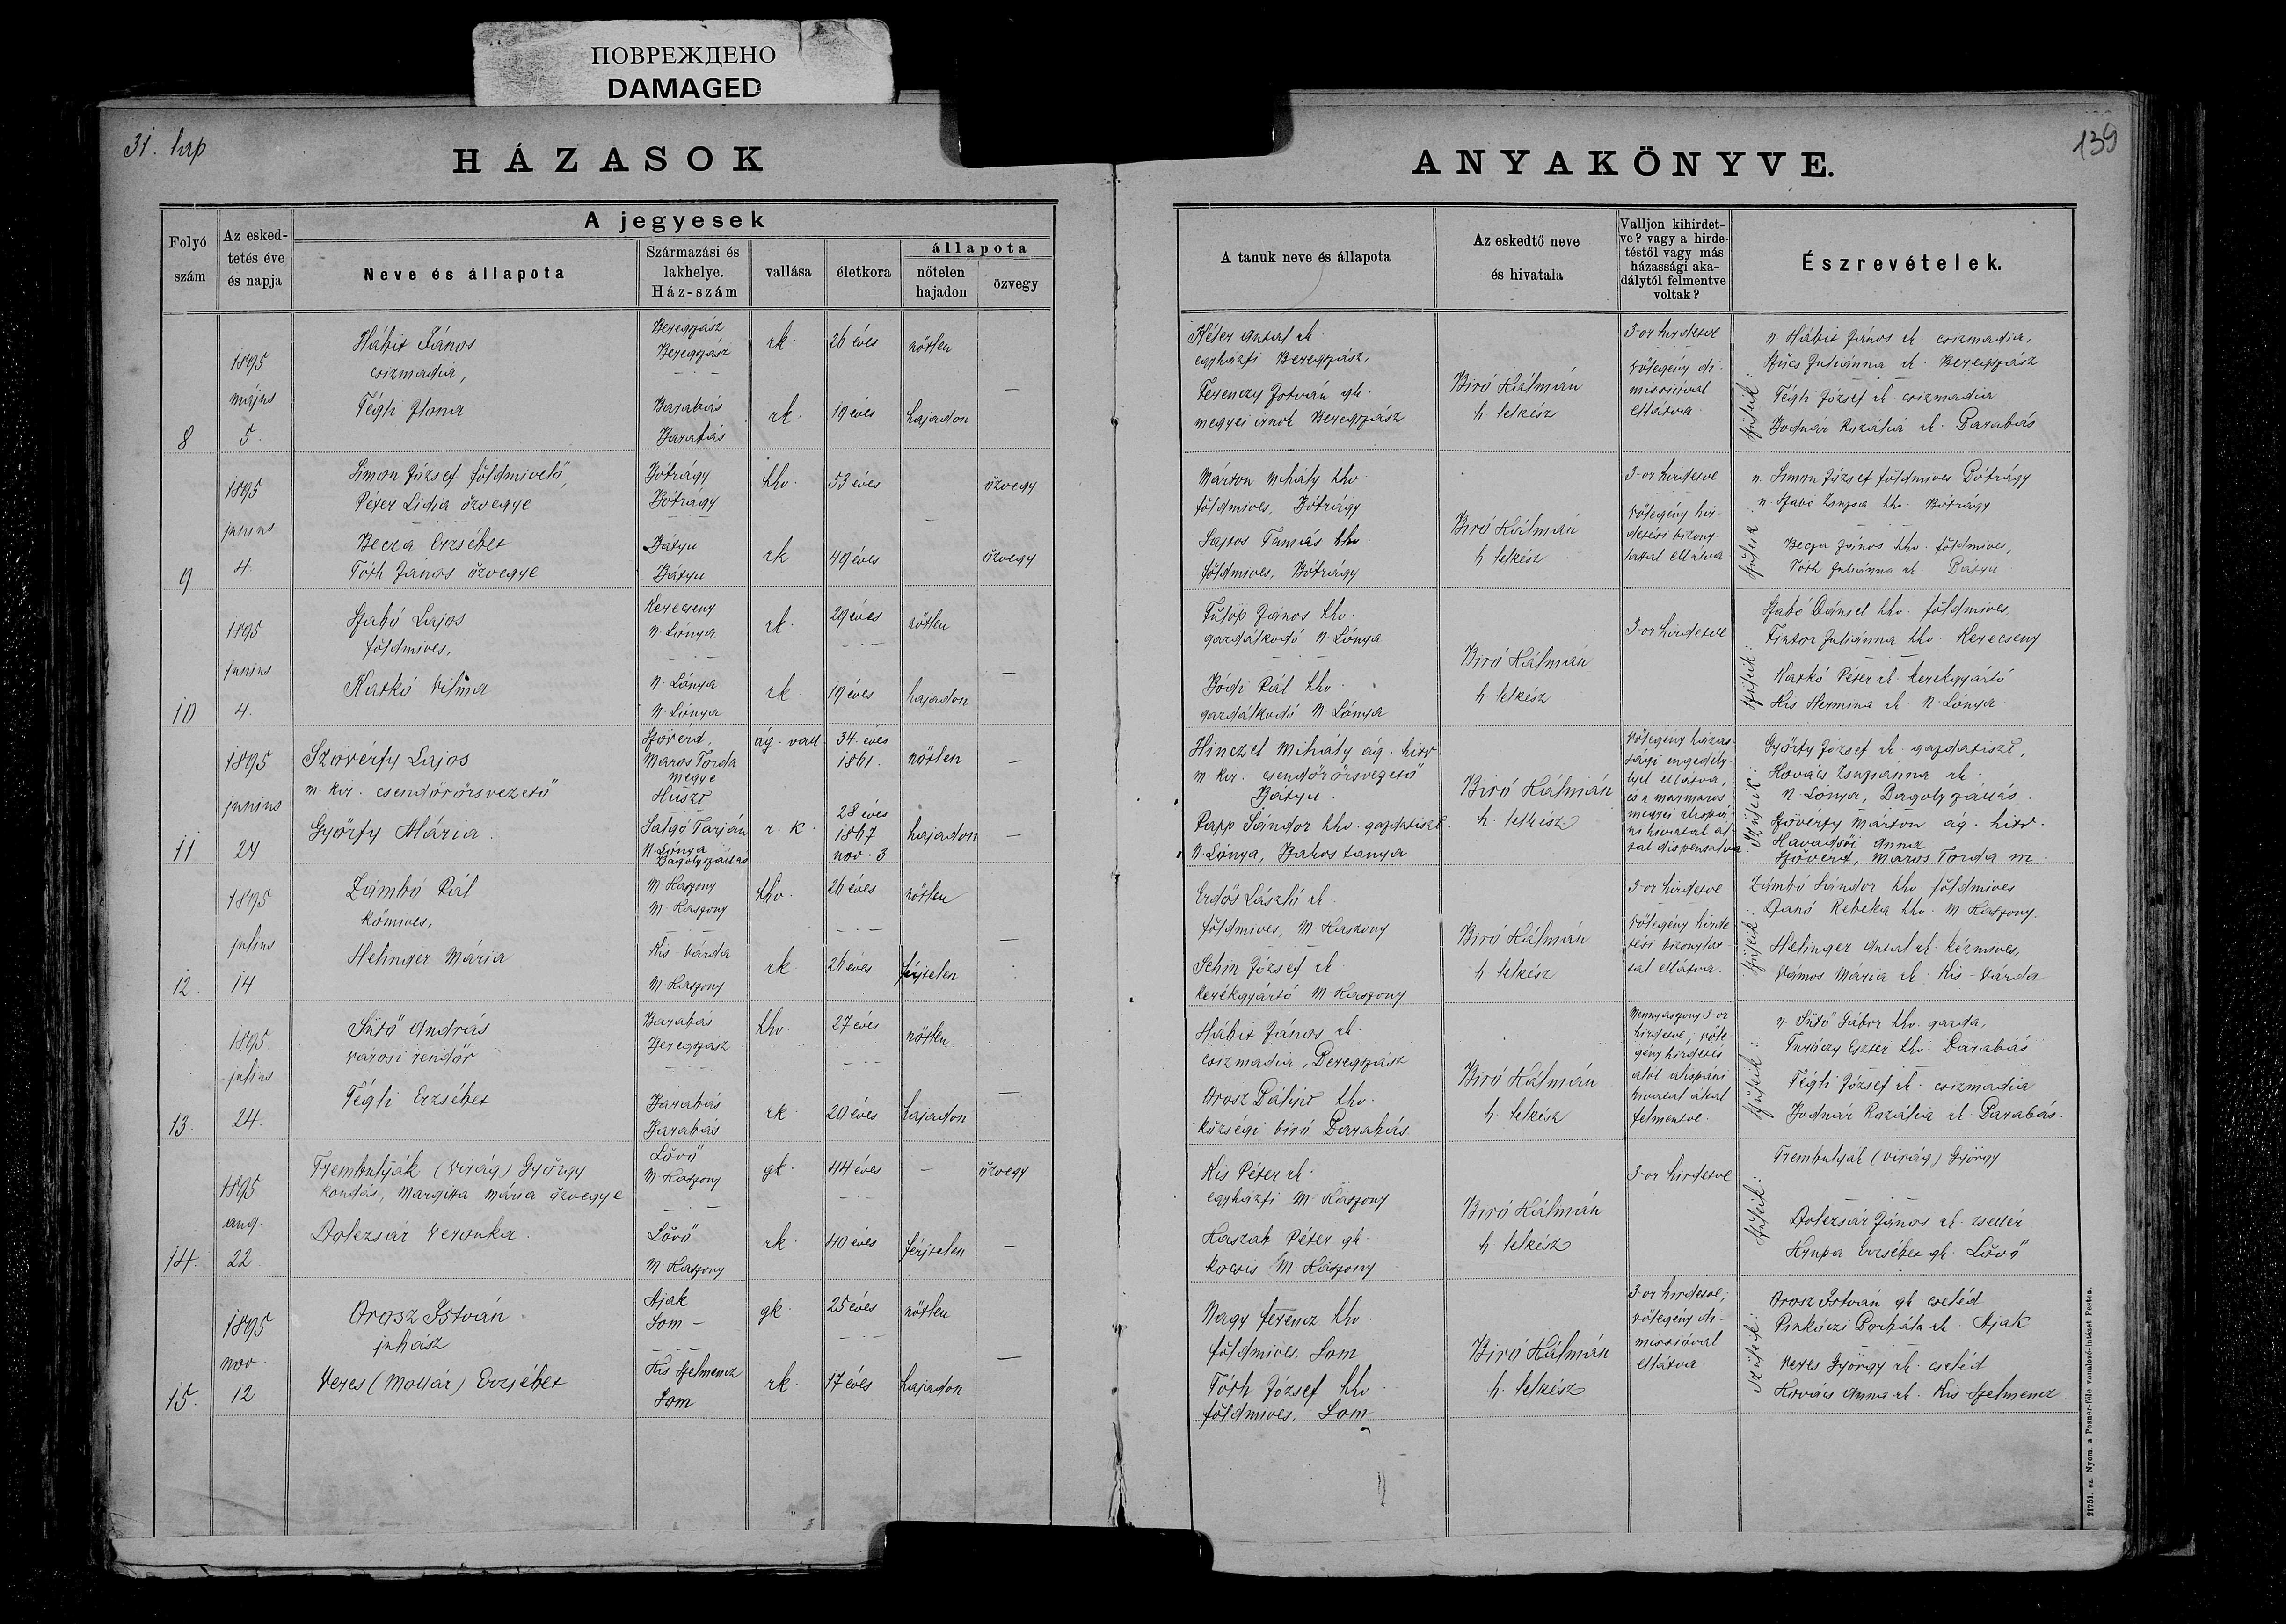 ПОВРЕЖДЕНО
DAMAGED
31. lap
139
HÁZASOK
ANYAKÖNYVE.
Folyó szám
Az esked-
tetés éve
és napja
A jegyesek
Neve és állapota
Származási és
lakhelye.
Ház-szám
vallása
életkora
állapota
nőtelen
hajadon
özvegy
A tanuk neve és állapota
Az eskedtő neve
és hivatala
Valljon kihirdet-
ve? vagy a hirde-
téstől vagy más
házassági aka-
dálytól felmentve
voltak?
Észrevételek.
8
1895
május
5.
Hábit János
csizmadia,
Tégli Ilona
Beregszász
Beregszász
Barabás
Barabás
rk.
rk.
26 éves
19 éves
nőtlen
hajadon
Antal rk.
egyházfi Beregszász,
Ferenczy István gk.
megyei írnok Beregszász
Biró Kálmán
h. lelkész
3-or hirdetve
vőlegény di-
missióval
ellátva.
szüleik:
n. Hábit János rk. csizmadia,
Szűcs Juliánna rk. Beregszász
Tégli József rk. csizmadia
Bodnár Rozália rk. Barabás
9
1895
junius
4.
Simon József földmivelő,
Péter Lidia özvegye
Becza Erzsébet
Tóth János özvegye
Bótrágy
Bótrágy
Bátyu
Bátyu
hhv.
rk
53 éves
49 éves
özvegy
özvegy
Márton Mihály hhv.
földmives, Bótrágy
Sajtos Tamás hhv.
földmives, Bótrágy
Biró Kálmán
h. lelkész
3-or hirdetve
vőlegény hir-
detési bizony-
lattal ellátva
szüleik:
n. Simon József földmives Bótrágy
n. Szabó Zsuzsa hhv. Bótrágy
Becza János hhv. földmives,
Tóth Juliánna rk. Bátyu
10
1895
junius
4.
Szabó Lajos
földmives,
Karkó Vilma
Kerecseny
N. Lónya
N. Lónya
N. Lónya
rk.
rk.
29 éves
19 éves
nőtlen
hajadon
Fülöp János hhv.
gazdálkodó N Lónya
Bódi Pál hhv.
gazdálkodó N Lónya
Biró Kálmán
h. lelkész
3-or hirdetve
szüleik:
Szabó Dániel hhv. földmives,
Juliánna hhv. Kerecseny
Karkó Péter rk. kerékgyártó
Kis Hermina rk N. Lónya
11
1895
junius
24
Szövérfy Lajos
m. kir. csendőrőrsvezető
Győrfy Mária.
Szövérd,
Maros Torda
megye
Huszt
Salgó Tarján
N. Lónya
Bagolyszállás
ág. vall
r. k.
34. éves
1861.
28 éves
1867
nov. 3
nőtlen
hajadon
Hinczel Mihály ág. hitv.
m. kir. csendőrőrsvezető
Bátyu.
Papp Sándor hhv. gazdatiszt.
N. Lónya, tanya
Biró Kálmán
h. lelkész
vőlegény házas-
sági engedély-
lyel ellátva,
és a mármaros
megyei alispá-
ni hivatal ál-
tal dispensalva
Szüleik:
Győrfy József rk. gazdatiszt,
Kovács Zsuzsánna rk.
N. Lónya, Bagolyszállás.
Szövérfy Márton ág. hitv.
Havadtői Anna
Szövérd, Maros Torda m.
12.
1895
julius
14
Zámbó Pál
kőmives,
Helinger Mária
M Kaszony
M. Kaszony
Kis-Várda
M Kaszony
hhv.
rk
26 éves
26 éves
nőtlen
férjtelen
Erdős László rk.
földmives, M. Kaszony
Schin József rk
kerékgyártó M. Kaszony
Biró Kálmán
h. lelkész
3-or hirdetve
vőlegény hirde-
tési bizonylat-
tal ellátva.
szüleik:
Zámbó Sándor hhv. földmives
Danó Rebeka hhv. M Kaszony.
Helinger Antal rk. kézmives,
Vámos Mária rk. Kis-Várda
13.
1895
julius
24.
Sütő András
városi rendőr
Tégli Erzsébet
Barabás
Beregszász
Barabás
Barabás
hhv.
rk.
27 éves
20 éves
nőtlen
hajadon
Hábit János rk.
csizmadia, Beregszász
Orosz Bálint hhv.
községi biró Barabás.
Biró Kálmán
h. lelkész
Mennyasszony 3-or
hirdetve, vőle-
gény hirdetés
alól alispáni
hivatal által
felmentve.
szüleik:
n. Sütő Gábor hhv. gazda,
Turóczy Eszter hhv. Barabás
Tégli József rk. csizmadia
Bodnár Rozália rk. Barabás.
14.
1895
aug.
22.
Trembulyák (Virág) György
kondás, Margitta Mária özvegye
Dolezsár Veronka.
Lövő
M. Kaszony
Lövő
M. Kaszony
gk.
rk.
44 éves
40 éves
férjtelen
özvegy
Kis Péter rk.
egyházfi M. Kaszony
Kaszab Péter gk.
kocsis M. Kaszony
Biró Kálmán
h. lelkész
3-or hirdetve
szüleik:
Trembulyák (Virág) György
Dolezsár János rk. zsellér
Hrupa Erzsébet gk. Lövő
15.
1895
nov.
12
Orosz István
juhász
Veres (Mollár) Erzsébet
Ajak
Som
Kis Szelmencz
Som
gk.
rk.
25 éves
17 éves
nőtlen
hajadon
Nagy Ferencz hhv.
földmives, Som
Tóth József hhv.
földmives, Som
Biró Kálmán
h. lelkész
3-or hirdetve,
vőlegény di-
missióval
ellátva.
szüleik:
Orosz István gk. cseléd
Pinkóczi Borbála rk. Ajak
Veres György rk. cseléd
Kovács Anna rk. Kis Szelmencz.
21751. sz. Nyom. a Posner-féle vonalozó-intézet Pesten.